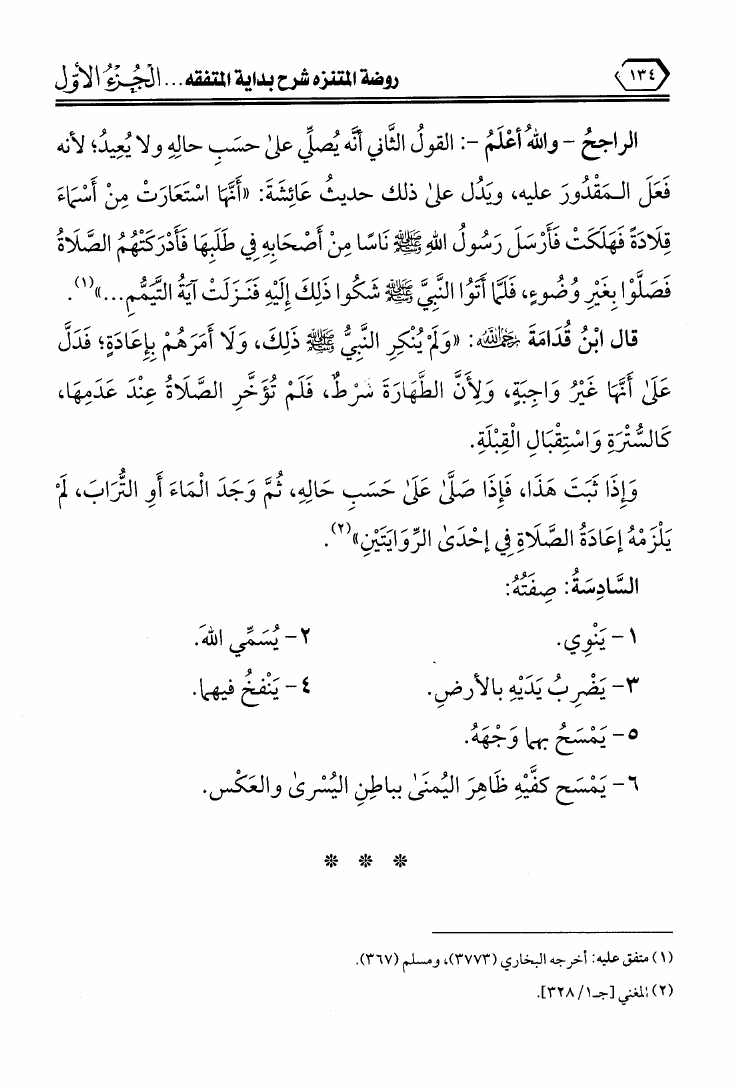 ١٣٤ روضة المتنزه شرح بداية المتفقه ... الجُزءُ الأوّل
الراجحُ – واللهُ أعْلَمُ –: القولُ الثَّاني أنَّه يُصلِّي علىٰ حسَبِ حالِهِ ولا يُعِيدُ؛ لأنه
فَعَلَ المَقْدُورَ عليه، ويَدُل علىٰ ذلك حديثُ عَائِشَةَ: «أَنَّهَا اسْتَعَارَتْ مِنْ أَسْمَاءَ
قِلَادَةً فَهَلَكَتْ فَأَرْسَلَ رَسُولُ اللهِ ﷺ نَاسًا مِنْ أَصْحَابِهِ فِي طَلَبِهَا فَأَدْرَكَتْهُمُ الصَّلَاةُ
فَصَلَّوْا بِغَيْرِ وُضُوءٍ، فَلَمَّا أَتَوُا النَّبِيَّ ﷺ شَكَوْا ذَلِكَ إِلَيْهِ فَنَزَلَتْ آيَةُ التَّيَمُّمِ...»(١).
قال ابْنُ قُدَامَةَ رَحِمَهُ اللهُ: «وَلَمْ يُنْكِرِ النَّبِيُّ ﷺ ذَلِكَ، وَلَا أَمَرَهُمْ بِإِعَادَةٍ؛ فَدَلَّ
عَلَىٰ أَنَّهَا غَيْرُ وَاجِبَةٍ، وَلِأَنَّ الطَّهَارَةَ شَرْطٌ، فَلَمْ تُؤَخَّرِ الصَّلَاةُ عِنْدَ عَدَمِهَا،
كَالسُّتْرَةِ وَاسْتِقْبَالِ الْقِبْلَةِ.
وَإِذَا ثَبَتَ هَذَا، فَإِذَا صَلَّىٰ عَلَىٰ حَسَبِ حَالِهِ، ثُمَّ وَجَدَ الْمَاءَ أَوِ التُّرَابَ، لَمْ
يَلْزَمْهُ إعَادَةُ الصَّلَاةِ فِي إحْدَىٰ الرِّوَايَتَيْنِ»(٢).
السَّادِسَةُ: صِفَتُهُ:
١- يَنْوِي. ٢- يُسَمِّي اللهَ.
٣- يَضْرِبُ يَدَيْهِ بالأرضِ. ٤- يَنْفخُ فيهما.
٥- يَمْسَحُ بهما وَجْهَهُ.
٦- يَمْسَح كفَّيْهِ ظَاهِرَ اليُمنَىٰ بباطِنِ اليُسْرىٰ والعَكْس.
* * *
(١) متفق عليه: أخرجه البخاري (٣٧٧٣)، ومسلم (٣٦٧).
(٢) المغني [جـ١/ ٣٢٨].